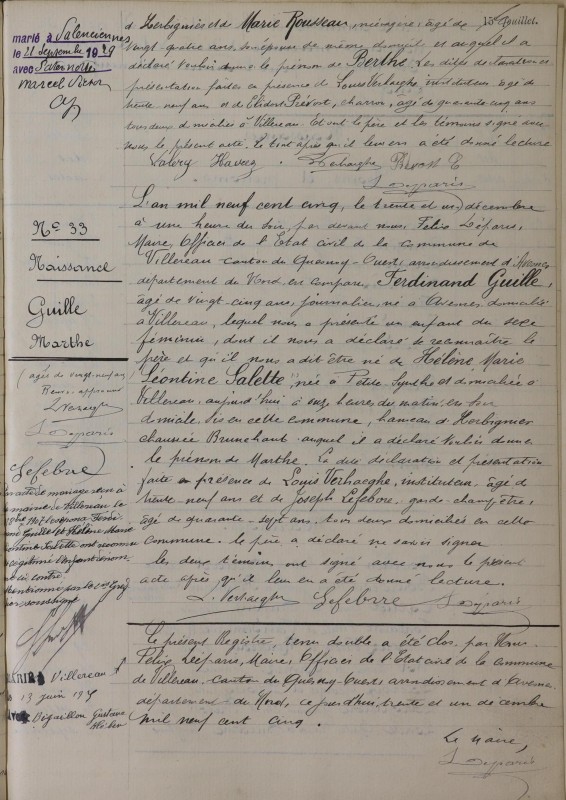 marié à Valenciennes
le 21 Septembre 1929
avec
Marcel Victor
15e Jouillet.
d'Herbignies et de Marie Rousseau, ménagère, âgée de
vingt-quatre ans, son épouse du même domicile et auquel il a
déclaré vouloir donner le prénom de Berthe. Les dites déclaration et
présentation faites en présence de Louis Verhaeghe, instituteur, âgé de
trente neuf ans et de Prévost, charron, âgé de quarante cinq ans
tous deux domiciliés à Villereau. Et ont le père et les témoins signé avec
nous le présent acte. Le tout après qu'il leur en a été donné lecture
Valéry Havez Verhaeghe Prévost E
Lesparis
N° 33
Naissance
Guille
Marthe
L'an mil neuf cent cinq, le trente et un décembre
à une heure du soir, par devant nous, Félix Lesparis,
Maire, Officier de l'Etat civil de la commune de
Villereau canton du Quesnoy-Ouest, arrondissement d'Avesnes
département du Nord, est comparu, Ferdinand Guille,
âgé de vingt-cinq ans, journalier, né à Avesnes, domicilié
à Villereau, lequel nous a présenté un enfant du sexe
féminin, dont il nous a déclaré se reconnaître le
père et qu'il nous a dit être né de Hélène Marie
Léontine Salette, née à Petite-Synthe et domiciliée à
Villereau, aujourd'hui à onze heures du matin, en son
domicile sis en cette commune, hameau d'Herbignies
chaussée Brunehaut auquel il a déclaré vouloir donner
le prénom de Marthe. La dite déclaration et présentation
faite en présence de Louis Verhaeghe, instituteur, âgé de
trente-neuf ans et de Joseph Lefebvre garde-champêtre,
âgé de quarante-sept ans, tous deux domiciliés en cette
commune. Le père a déclaré ne savoir signer
les deux témoins ont signé avec nous le présent
acte après qu'il leur en a été donné lecture.
L. Verhaeghe Lefebvre Lesparis
(âgée de vingt-neuf ans)
Renvoi approuvé
L Verhaeghe
Lesparis
Lefebvre
Par acte de mariage dressé à
la mairie de Villereau le
1907 Ferdi
nand Guille et Hélène Marie
Léontine Salette ont reconnu
et légitimé l'enfant dénom
mé ci contre.
Mentionné par le Greffier
soussigné
Villereau
13 juin
Gustave
Le présent Registre, tenu double, a été clos par Nous
Félix Lesparis, Maire, Officier de l'Etat civil de la commune
de Villereau. Canton du Quesnoy-Ouest, arrondissement d'Avesnes
département du Nord, ce jourd'hui trente et un décembre
mil neuf cent cinq.
Le Maire,
Lesparis